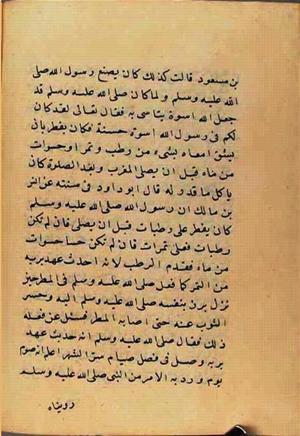 بن مسعود قالت كذلك كان يصنع رسول الله صلى
الله عليه وسلم ولما كان صلى الله عليه وسلم قد
جعل الله اسوة يتاسى به فقال تعالى لقد كان
لكم فى رسول الله اسوة حسنة فكان يفطر بان
يشق امعاه بشىء من رطب وتمر او حسوات
من ماء قبل ان يصلى المغرب وبعد الصلوة كان
ياكل ما قدر له قال ابو داود فى سننه عن انس
بن مالك ان رسول الله صلى الله عليه وسلم
كان يفطر على رطبات قبل ان يصلى فان لم تكن
رطبات فعلى تمرات فان لم تكن حسا حسوات
من ماء فقدم الرطب لانه احدث عهد بربه
من التمر كما فعل صلى الله عليه وسلم فى المطر حين
نزل برز بنفسه صلى الله عليه وسلم اليه وحسر
الثوب عنه حتى اصابه المطر فسئل عن فعله
ذلك فقال صلى الله عليه وسلم انه حديث عهد
بربه وصل فى فصل صيام سرر الشهر اعلم انه صوم
يوم ورد به الامر من النبى صلى الله عليه وسلم
روينا